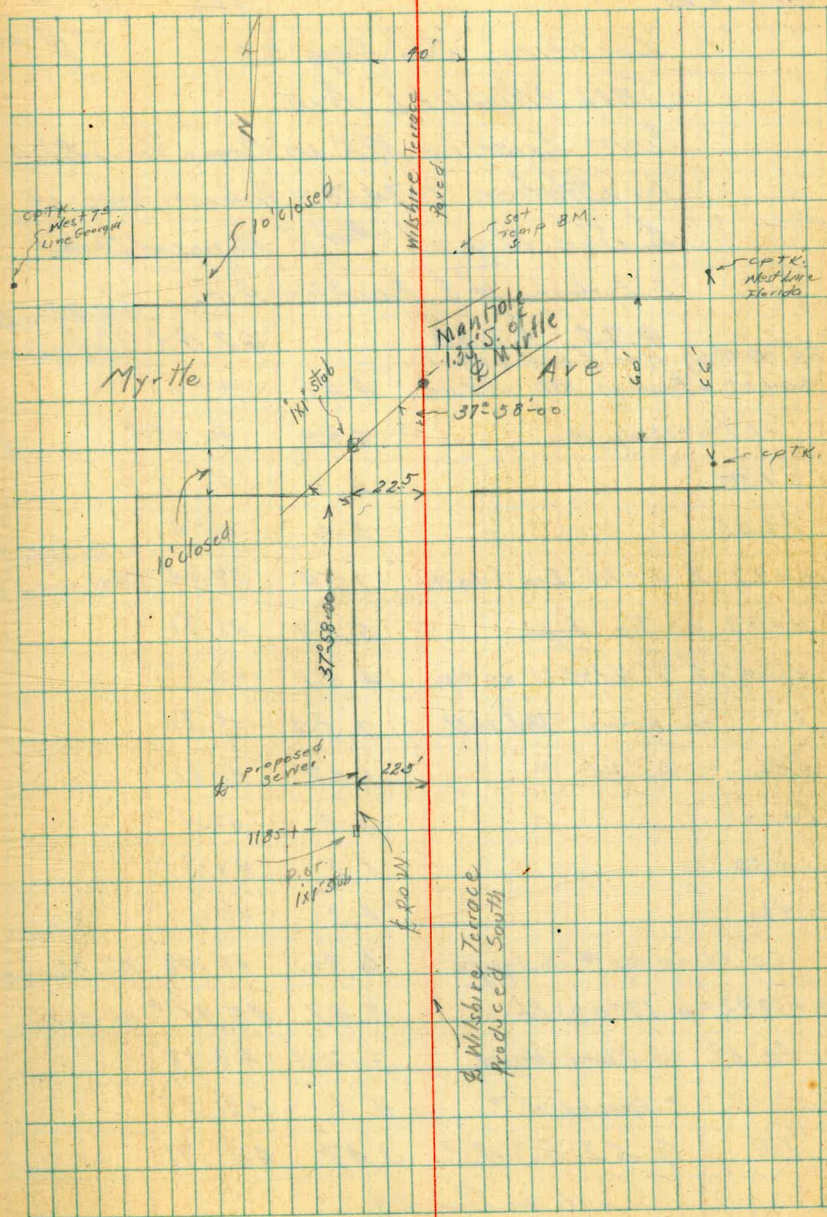 N
40'
Wilshire Terrace
Paved
10' closed
cp TK.
West 7
Line Georgia
set
Temp B.M.
cp TK.
West Line
Florida
Manhole
1.35' S. of
℄ Myrtle
Myrtle
Ave
1x1" stub
60'
37°-58'-00
cp TK.
22.5
10' closed
37°-58'-00
℄ proposed
sewer.
22.5'
1185+-
P.O.T.
1x1" stub
℄ ROW
℄ Wilshire Terrace
Produced South